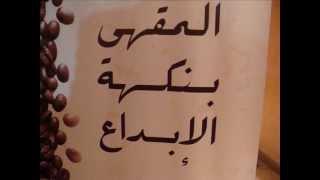 المقهى
بنكهة
الإبداع